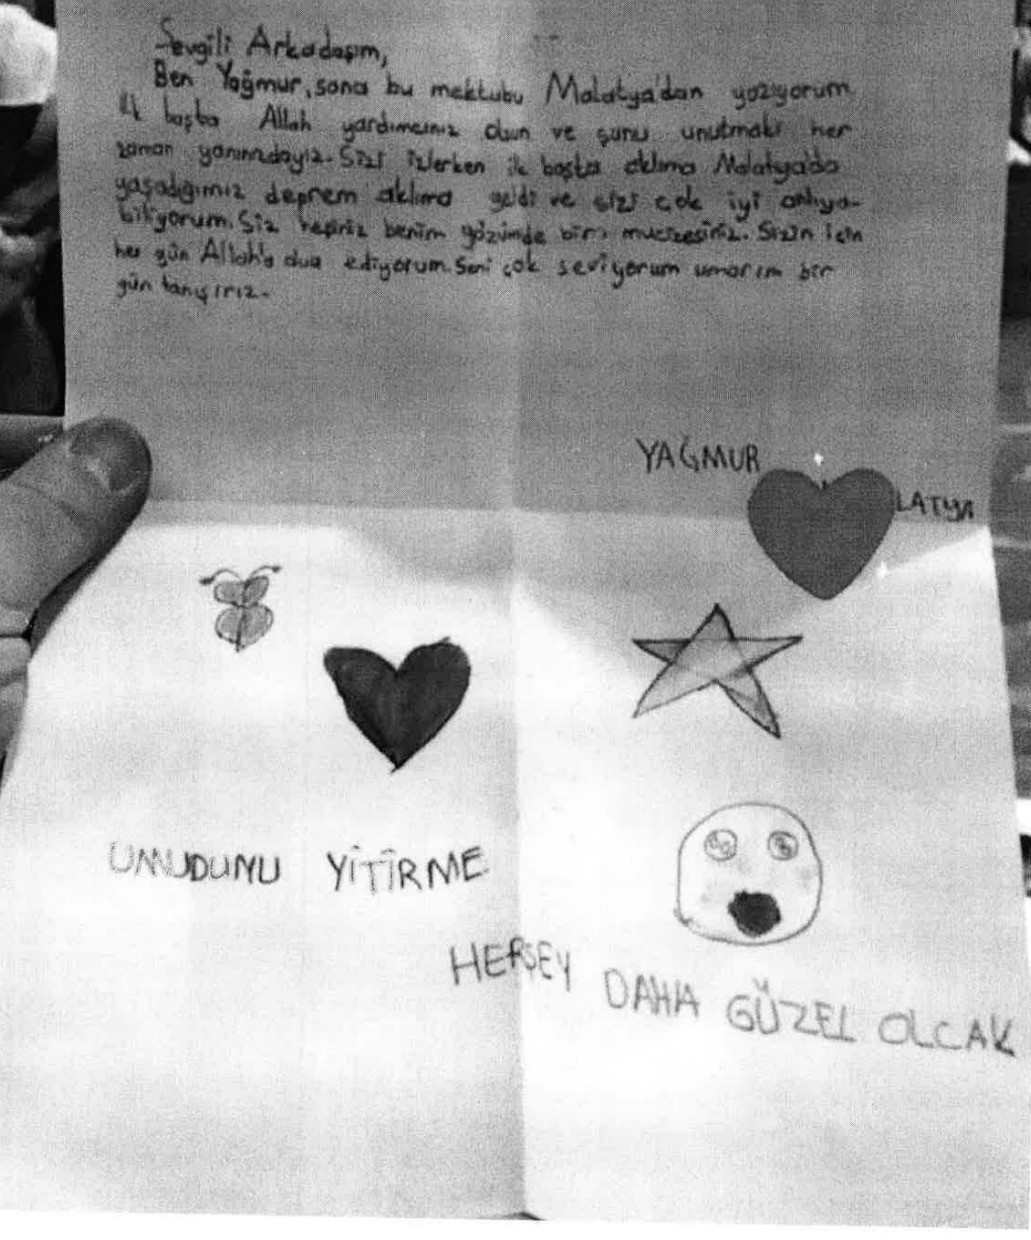 Sevgili Arkadaşım,
Ben Yağmur, sana bu mektubu Malatya'dan yazıyorum
İlk başta Allah yardımcınız olsun ve şunu unutmakı her
zaman yanınızdayız. Sizi izlerken ilk başta aklıma Malatya'da
yaşadığımız deprem aklıma geldi ve sizi çok iyi anlıya-
biliyorum. Siz hepiniz benim gözümde birer mucizesiniz. Sizin için
her gün Allah'a dua ediyorum. Seni çok seviyorum umarım bir
gün tanışırız.
YAĞMUR
LATYA
UMUDUNU YİTİRME
HERŞEY DAHA GÜZEL OLCAK